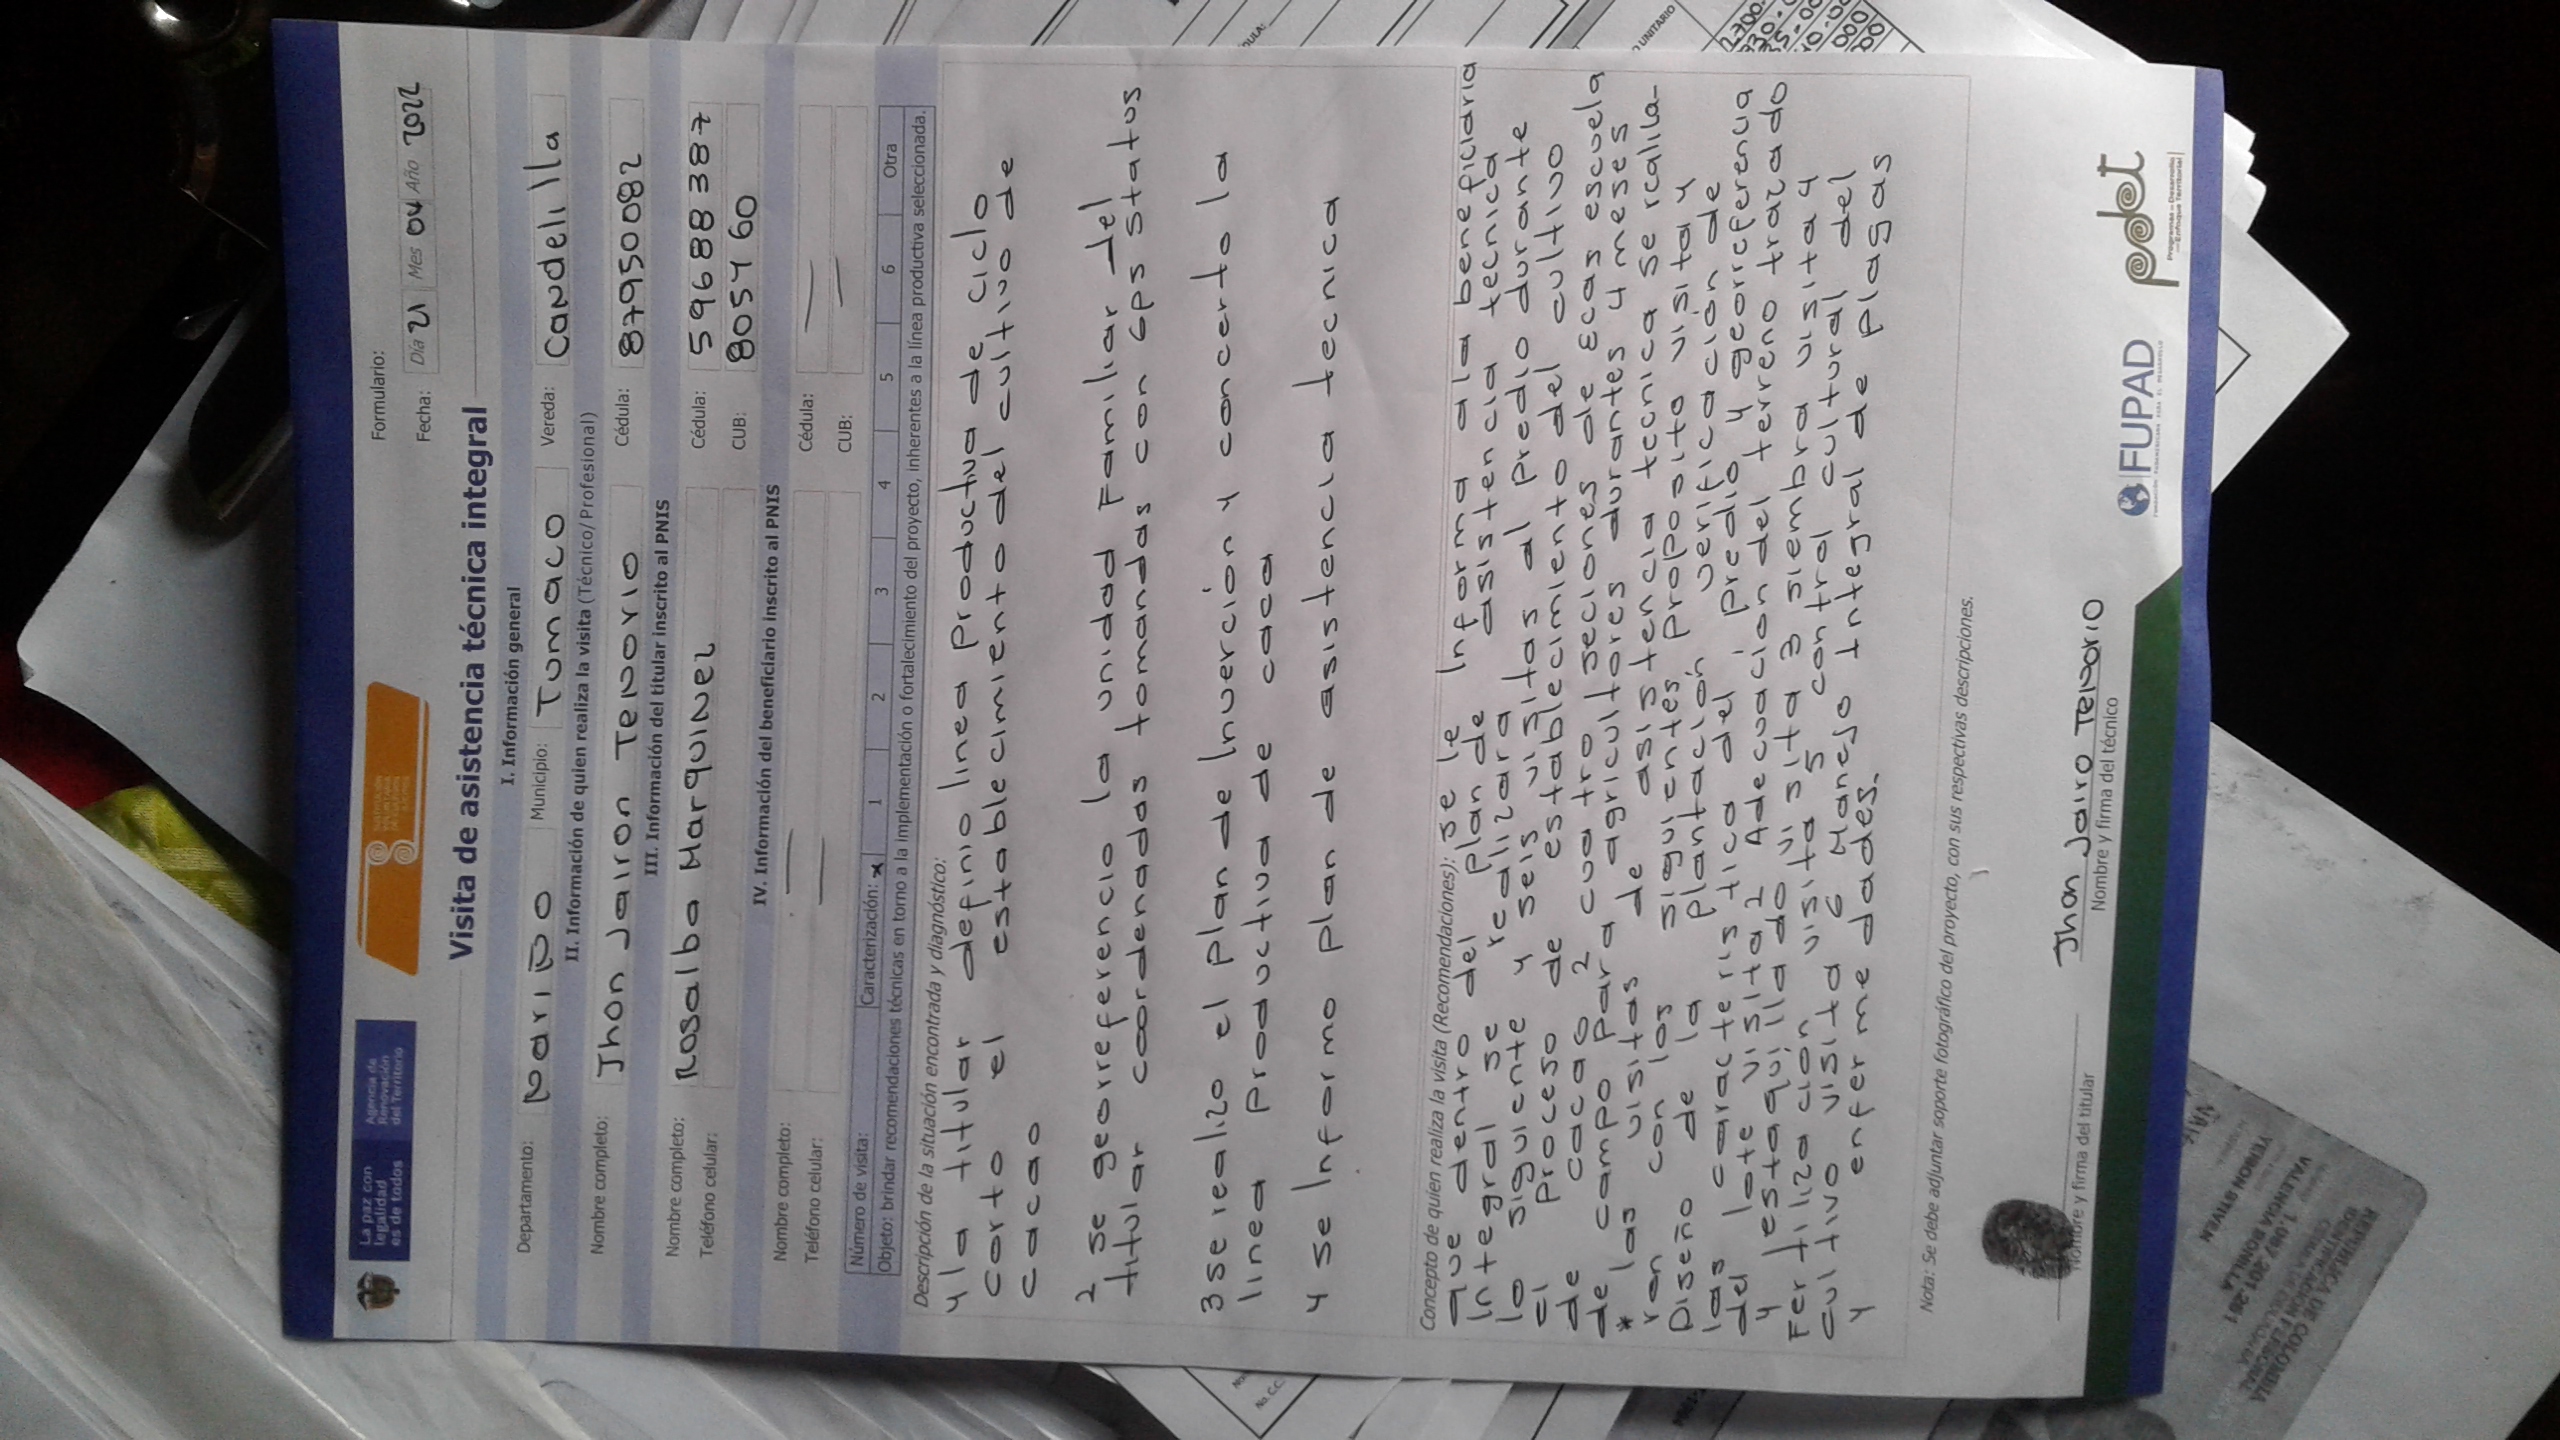 La paz con
legalidad
es de todos
Agencia de
Renovación
del Territorio
Formulario:
Fecha: Día 21 Mes 04 Año 2022
Visita de asistencia técnica integral
I. Información general
Departamento: Nariño Municipio: Tumaco Vereda: Candelilla
II. Información de quien realiza la visita (Técnico/Profesional)
Nombre completo: Jhon Jairon Tenorio Cédula: 87950082
III. Información del titular inscrito al PNIS
Nombre completo: Rosalba Marquinez Cédula: 59688387
Teléfono celular: CUB: 805460
IV. Información del beneficiario inscrito al PNIS
Nombre completo: — Cédula: —
Teléfono celular: — CUB: —
Número de visita: Caracterización: x 1 2 3 4 5 6 Otra
Objeto: brindar recomendaciones técnicas en torno a la implementación o fortalecimiento del proyecto, inherentes a la línea productiva seleccionada.
Descripción de la situación encontrada y diagnóstico:
1 la titular definio linea productiva de ciclo
corto el establecimiento del cultivo de
cacao
2 se georreferencio la unidad Familiar del
titular coordenadas tomandas con Gps status
3 se realizo el plan de Inverción y concerto la
linea productiva de caca
4 se Informo plan de asistencia tecnica
Concepto de quien realiza la visita (Recomendaciones): se le Informa ala beneficiaria
que dentro del plan de asistencia tecnica
Integral se realizara
lo siguiente 4 seis visitas al predio durante
el proceso de establecimiento del cultivo
de cacao 2 cuatro seciones de Ecas escuela
de campo para agricultores durantes 4 meses
* las visitas de asistencia tecnica se realiza-
ran con los siguientes proposito visita 1
Diseño de la plantación verificación de
las caracteristica del predio y georreferencia
del lote visita 2 Adecuación del terreno trazado
y estaquillado visita 3 siembra visita 4
Fertilización visita 5 control cultural del
cultivo visita 6 Manejo Integral de plagas
y enfermedades.
Nota: Se debe adjuntar soporte fotográfico del proyecto, con sus respectivas descripciones.
Jhon Jairo Tenorio
Nombre y firma del titular Nombre y firma del técnico
FUPAD
pdet
Programas de Desarrollo
con Enfoque Territorial
REPUBLICA DE COLOMBIA
IDENTIFICACION PERSONAL
VALENCIA BONILLA
YEIRON STIVEN